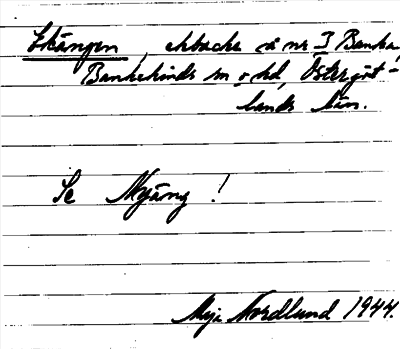 Skängen, ekbacke å nr 3 Banka,
Bankekinds sn o. hd, Östergöt-
lands län.
Se Nyäng!
Maja Nordlund 1944.